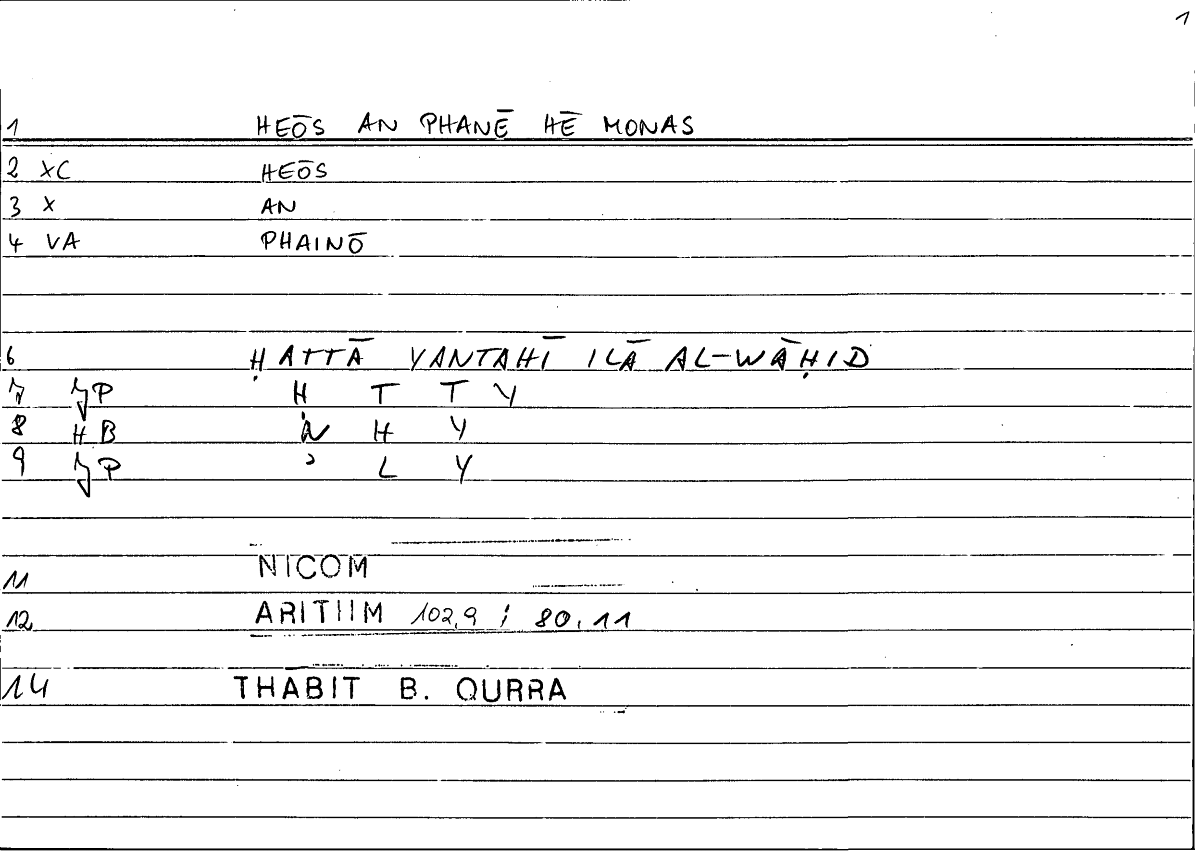 1
1 HEŌS AN PHANĒ HĒ MONAS
2 XC HEŌS
3 X AN
4 VA PHAINŌ
6 ḤATTĀ YANTAHĪ ILĀ AL-WĀḤID
7 P H T T Y
8 HB N H Y
9 P ʾ L Y
11 NICOM
12 ARITIIM 102,9 ; 80,11
14 THĀBIT B. QURRA